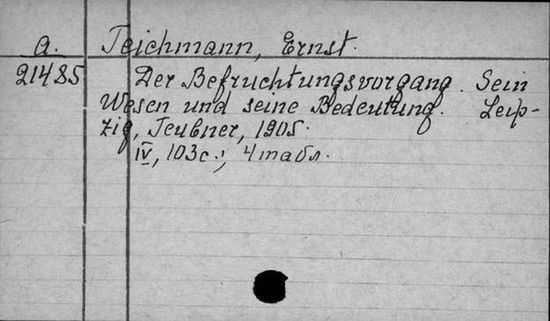 a. Teichmann, Ernst.
21485 Der Befruchtungsvorgang. Sein
Wesen und seine Bedeutung. Leip-
zig, Teubner, 1905.
IV, 103c.; 4 табл.